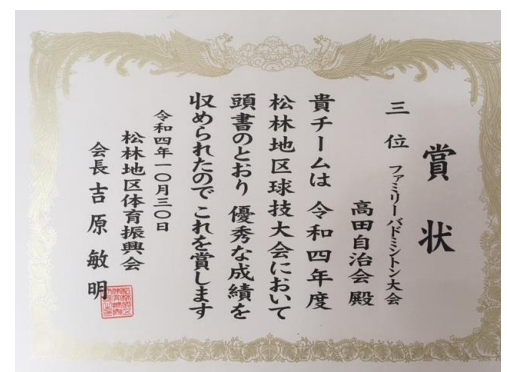 賞状
三位 ファミリーバドミントン大会
高田自治会殿
貴チームは 令和四年度
松林地区球技大会において
頭書のとおり 優秀な成績を
収められたのでこれを賞します
令和四年一〇月三〇日
松林地区体育振興会
会長 吉原敏明